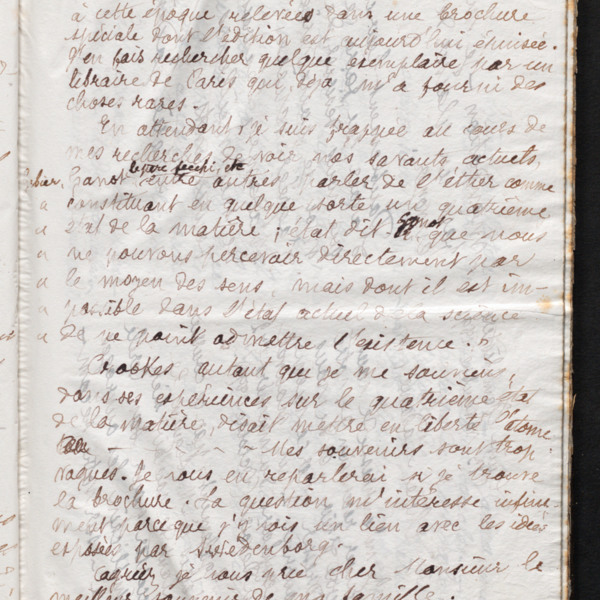 à cette époque, relevées dans une brochure
spéciale dont l'édition est aujourd'hui épuisée.
J'en fais rechercher quelque exemplaire par un
libraire de Paris qui déjà m'a fourni des
choses rares.
En attendant, je suis frappée au cours de
mes recherches de voir nos savants actuels,
le père Secchi, etc
Ganot entre autres parler de l'éther comme
« constituant en quelque sorte un quatrième
« état de la matière ; état dit Ganot que nous
« ne pouvons percevoir directement par
« le moyen des sens, mais dont il est im-
« possible dans l'état actuel de la science
« de ne point admettre l'existence. »
Crookes autant que je me souviens,
dans ses expériences sur le quatrième état
de la matière, disait mettre en liberté l'atome
— Mes souvenirs sont trop
vagues. Je vous en reparlerai si je trouve
la brochure. La question m'intéresse infini-
ment parce que j'y vois un lien avec les idées
exposées par Swedenborg.
Agréez je vous prie cher Monsieur le
meilleur souvenir de ma famille.